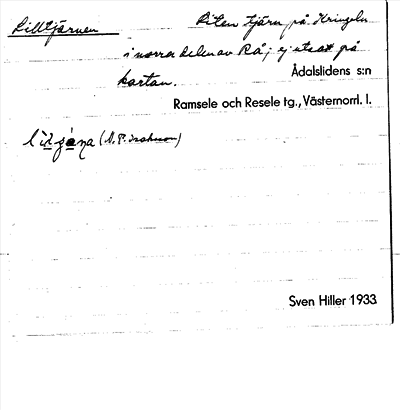 Lilltjärnen
Liten tjärn på Kringeln
i norra delen av Rå; ej utsatt på
kartan.
Ådalslidens s:n
Ramsele och Resele tg., Västernorrl. l.
(N. P. Isaksson)
Sven Hiller 1933